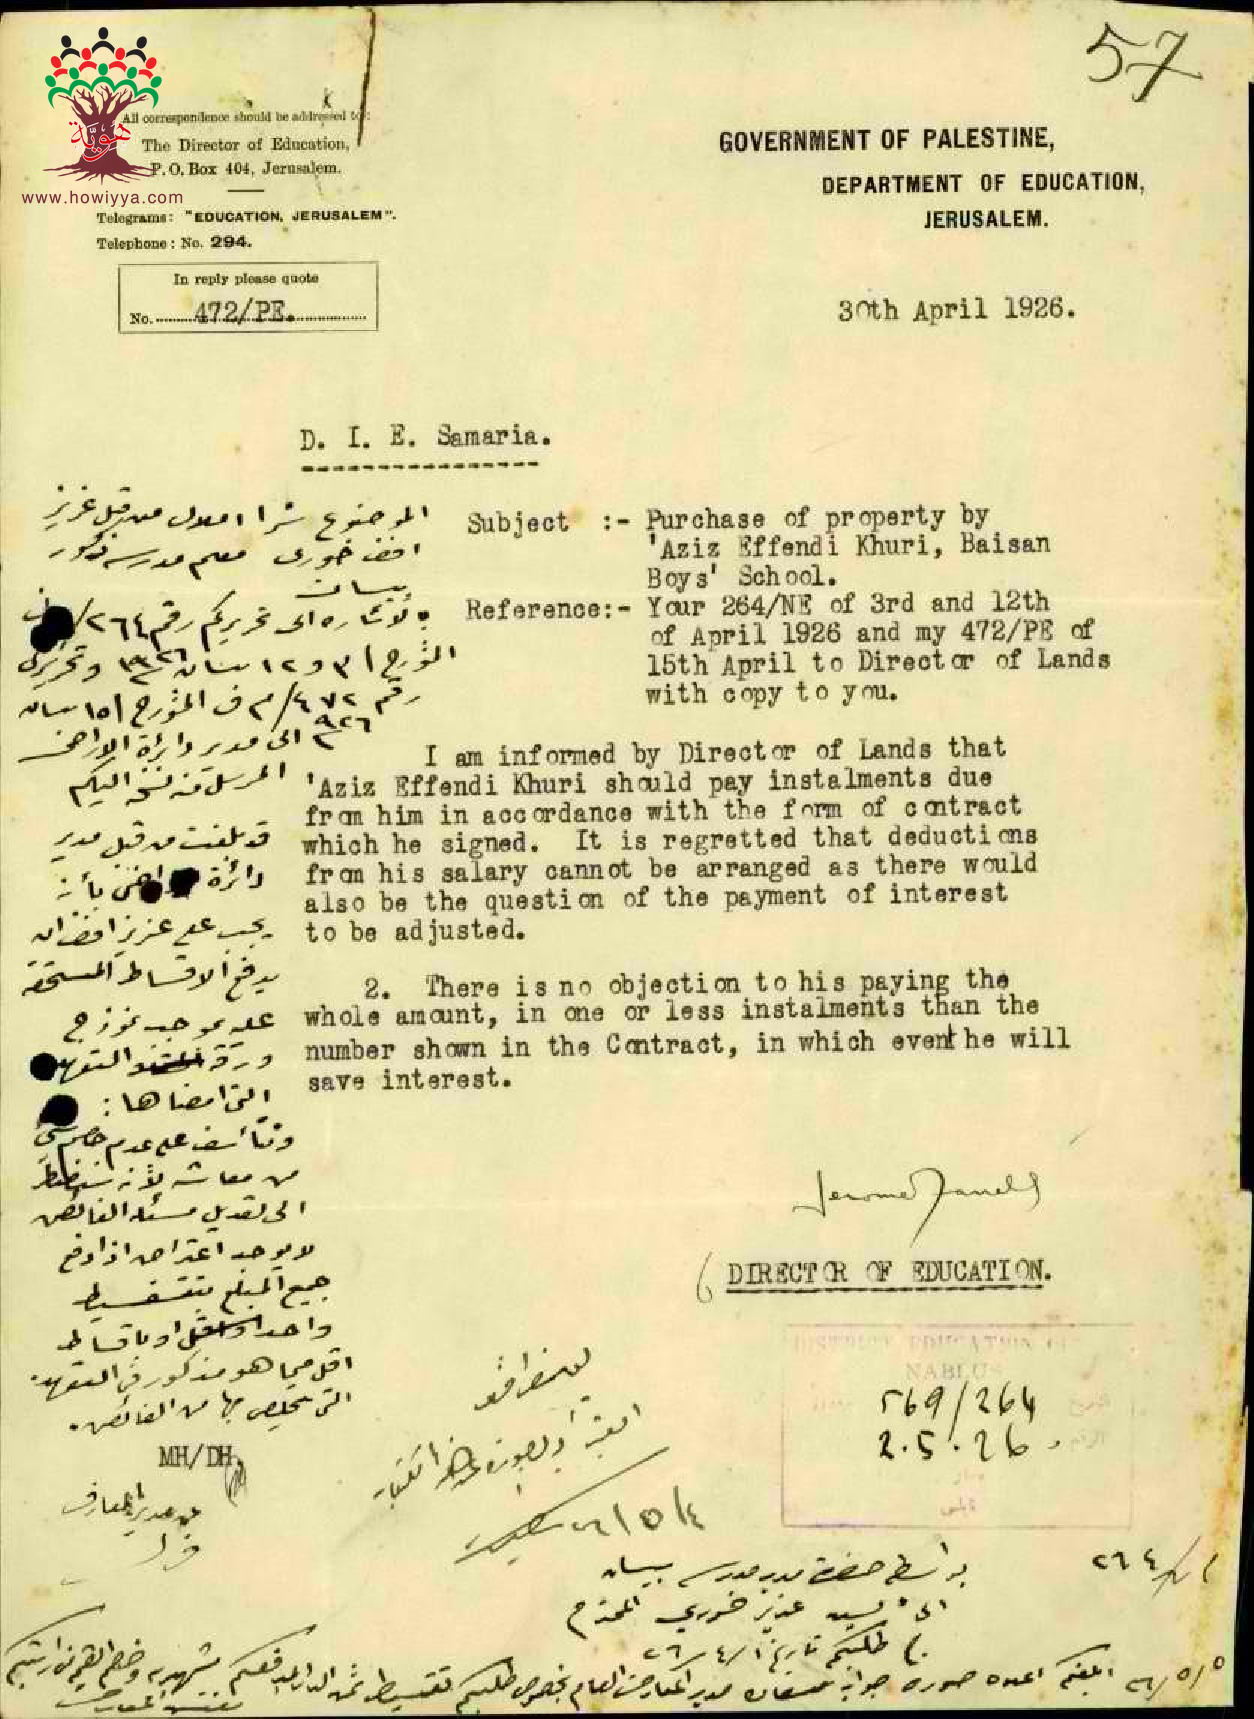 57
هوية
www.howiyya.com
All correspondence should be addressed to:
The Director of Education,
P. O. Box 404, Jerusalem.
Telegrams: "EDUCATION, JERUSALEM".
Telephone: No. 294.
In reply please quote
No. 472/PE.
GOVERNMENT OF PALESTINE,
DEPARTMENT OF EDUCATION,
JERUSALEM.
30th April 1926.
D. I. E. Samaria.
Subject :- Purchase of property by
'Aziz Effendi Khuri, Baisan
Boys' School.
Reference:- Your 264/NE of 3rd and 12th
of April 1926 and my 472/PE of
15th April to Director of Lands
with copy to you.
I am informed by Director of Lands that
'Aziz Effendi Khuri should pay instalments due
from him in accordance with the form of contract
which he signed. It is regretted that deductions
from his salary cannot be arranged as there would
also be the question of the payment of interest
to be adjusted.
2. There is no objection to his paying the
whole amount, in one or less instalments than the
number shown in the Contract, in which event he will
save interest.
DIRECTOR OF EDUCATION.
الموضوع شرا املاك من قبل عزيز
افندي خوري معلم مدرسة ذكور
بيسان
بالاشاره الى تحريركم رقم ٢٦٤/
المؤرخ ٣ و ١٢ نيسان ١٩٢٦ وتحريري
رقم ٤٧٢/م ف المؤرخ ١٥ نيسان
٩٢٦ الى مدير دائرة الاراضي
المرسل منه نسخه اليكم
قد بلغت من قبل مدير
دائرة بأن
يجب على عزيز افندي ان
يدفع الاقساط المستحقة
عليه بموجب نموذج
ورقة التعهد
التي امضاها:
ونتأسف على عدم
من معاشه لأنه
الى تعديل مسئلة الفائض
لا يوجد اعتراض اذا دفع
جميع المبلغ بتقسيط
واحد او باقساط
اقل مما هو مذكور في التعهد
التي يخلص بها من الفائض.
MH/DH.
عن مدير المعارف
DISTRICT EDUCATION
NABLUS
569/264
2.5.26
٢٦/٥/٤
٢٦٤/
بواسطة حضرة مدير مدرسة بيسان
الى السيد عزيز خوري المحترم
طلبكم تاريخ ٢٦/٤/١
٢٦/٥/٥ ابلغكم اعلاه صورة جواب سعادة مدير المعارف العام بخصوص طلبكم تقسيط ثمن الدار